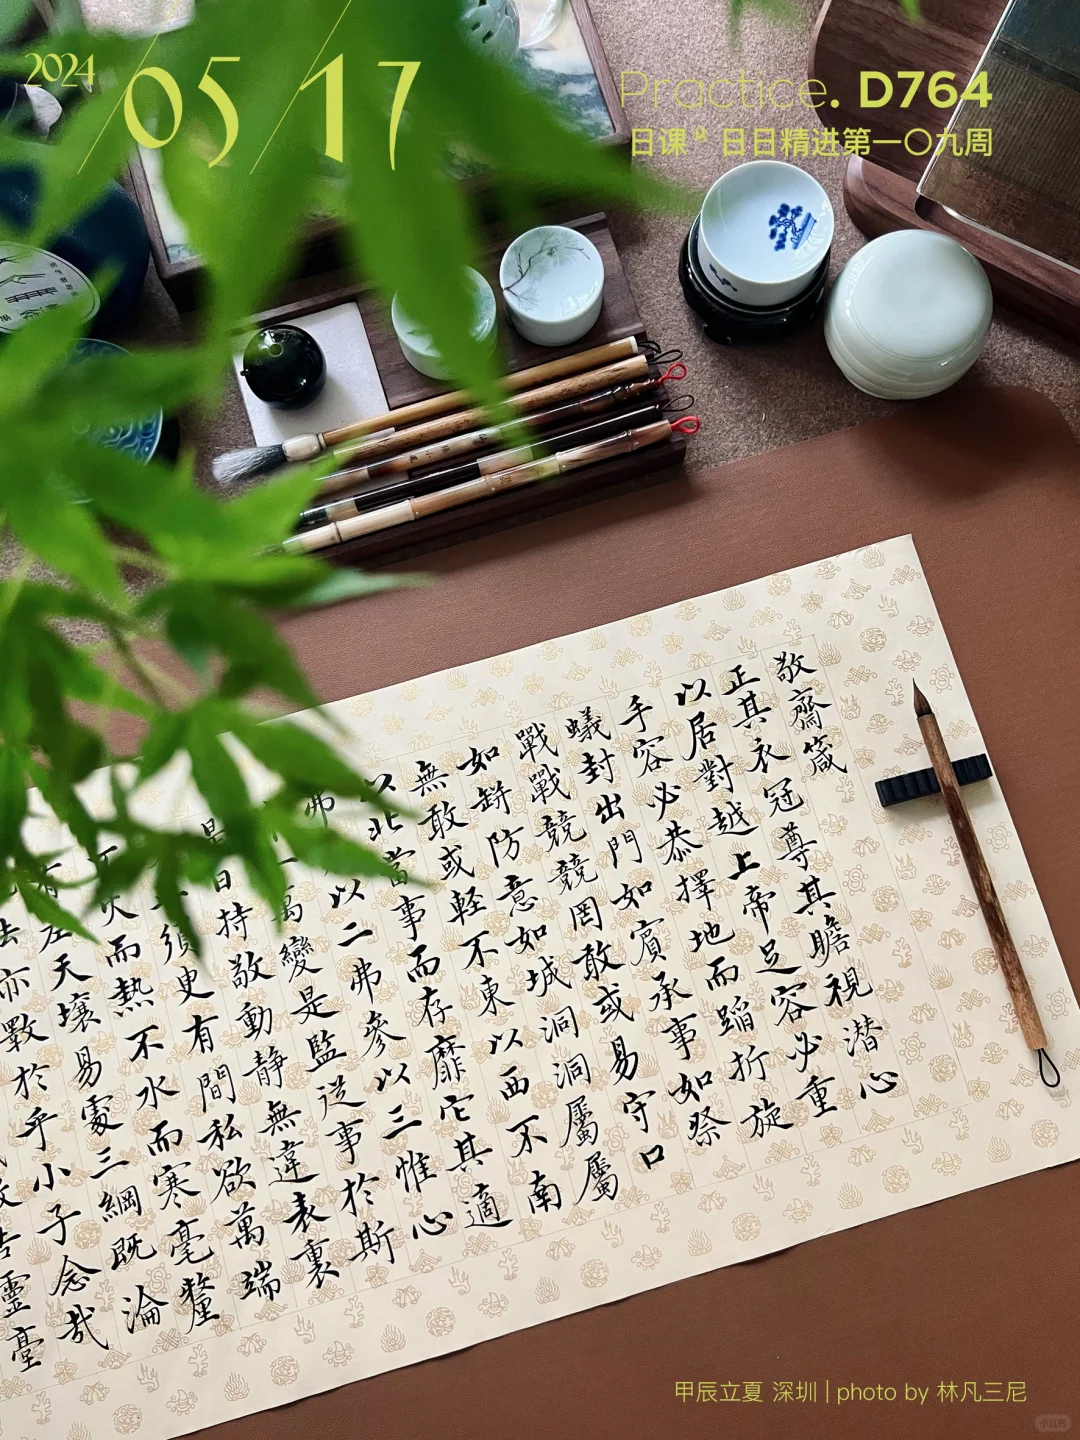 2024/05/17
Practice. D764
日课 日日精进第一〇九周
敬齋箴
正其衣冠尊其瞻視潜心
以居對越上帝足容必重
手容必恭擇地而蹈折旋
蟻封出門如賓承事如祭
戰戰競競罔敢或易守口
如缾防意如城洞洞屬屬
無敢或輕不東以西不南
以北當事而存靡它其適
弗以二弗參以三惟心
一萬變是監從事於斯
是曰持敬動静無違表裏
須臾有間私欲萬端
不火而熱不水而寒毫釐
有差天壤易處三綱既淪
法亦斁於乎小子念哉
告靈臺
甲辰立夏 深圳 | photo by 林凡三尼
小红书